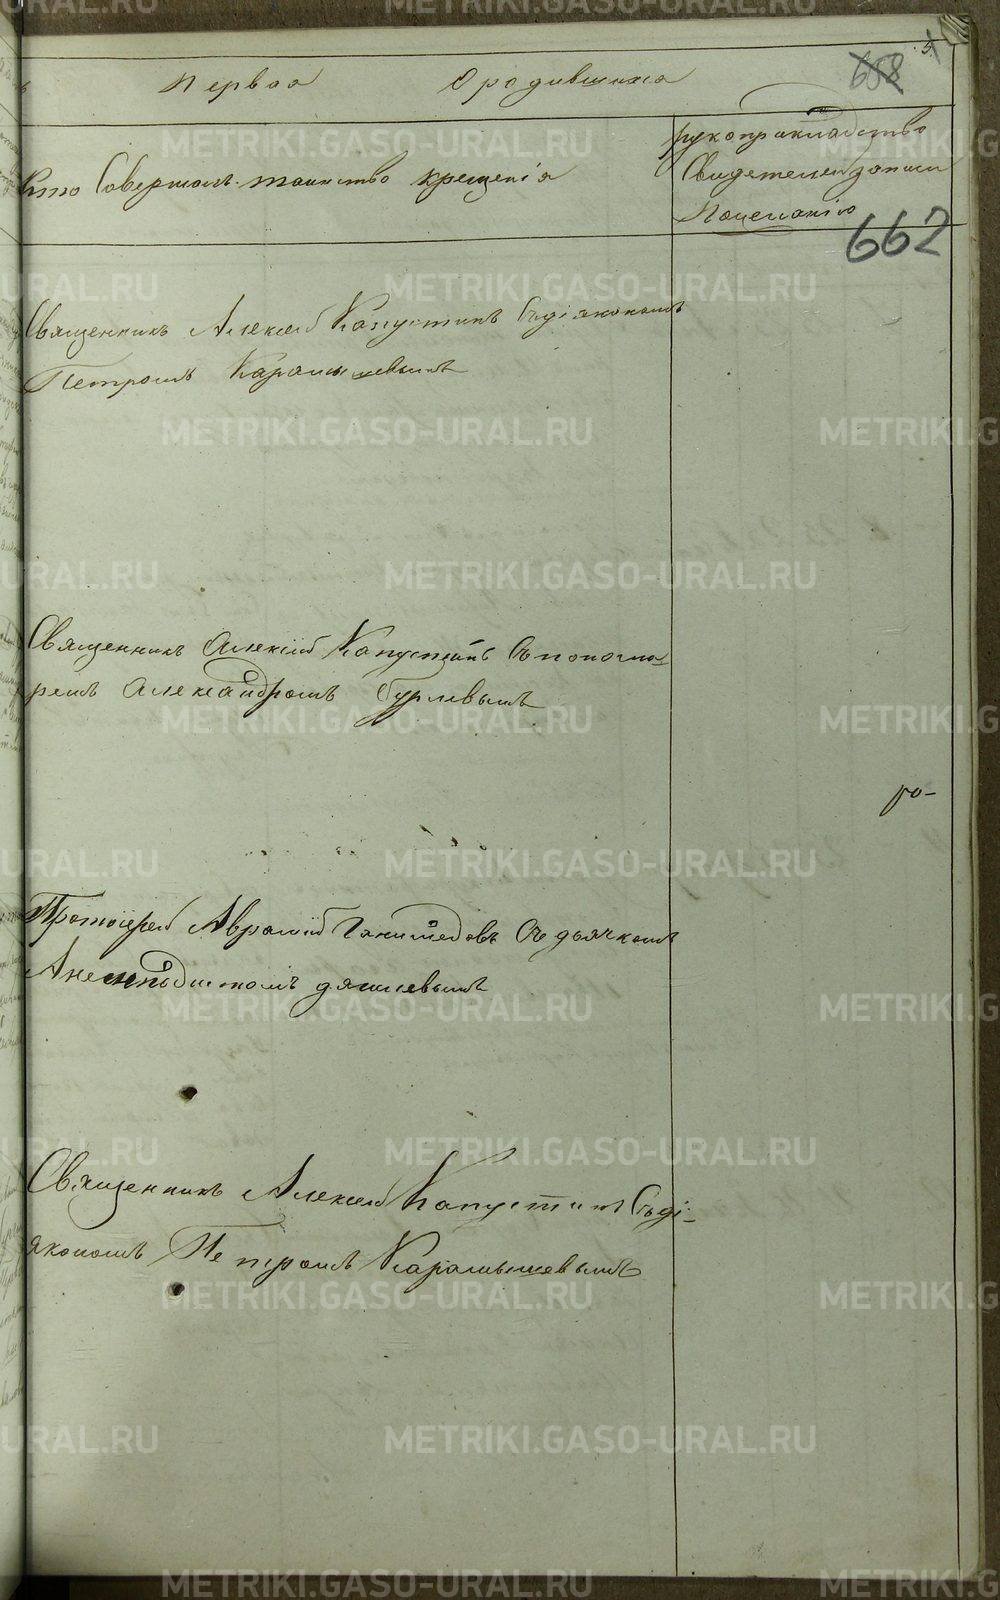 Первая О родившихся
658
5
Кто Совершалъ таинство крещенія
рукоприкладство
Свидетелей записи
По желанію
662
Священникъ Алексей Капустинъ Съ діакономъ
Петромъ Карамышевымъ
Священникъ Алексій Капустинъ Съ понома-
ремъ Александромъ Бурлевымъ
Протоіерей Аврамій Ганимедовъ Съ дьячкомъ
Анемподистомъ Дягилевымъ
ро-
Священникъ Алексей Капустинъ Съ ді-
якономъ Петромъ Карамышевымъ
METRIKI.GASO-URAL.RU